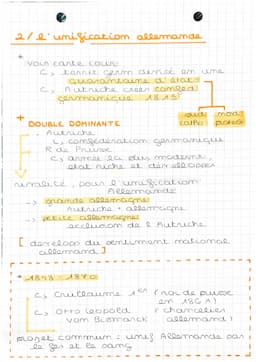 2/ l'unification allemande
* voir carte cour
↳ territ germ divisé en une
quarantaine d'état
↳ Autriche créer confed
germanique 1815
sud nord
catho protest
+ DOUBLE DOMINANTE
. Autriche
↳ confédération germanique
R de Prusse
↳ armée la plus moderne,
état riche et développé
rivalité pour l'unification
Allemande
-> grande allemagne
Autriche + allemagne
-> petite allemagne
exclusion de l'Autriche
[ develop du sentiment national
allemand ]
* 1848 - 1870
↳ Guillaume 1er ( roi de prusse
en 1861 )
↳ Otto leopold ( chancelier
von Bismarck allemand )
projet commun : unif Allemande par
le fer et le sang